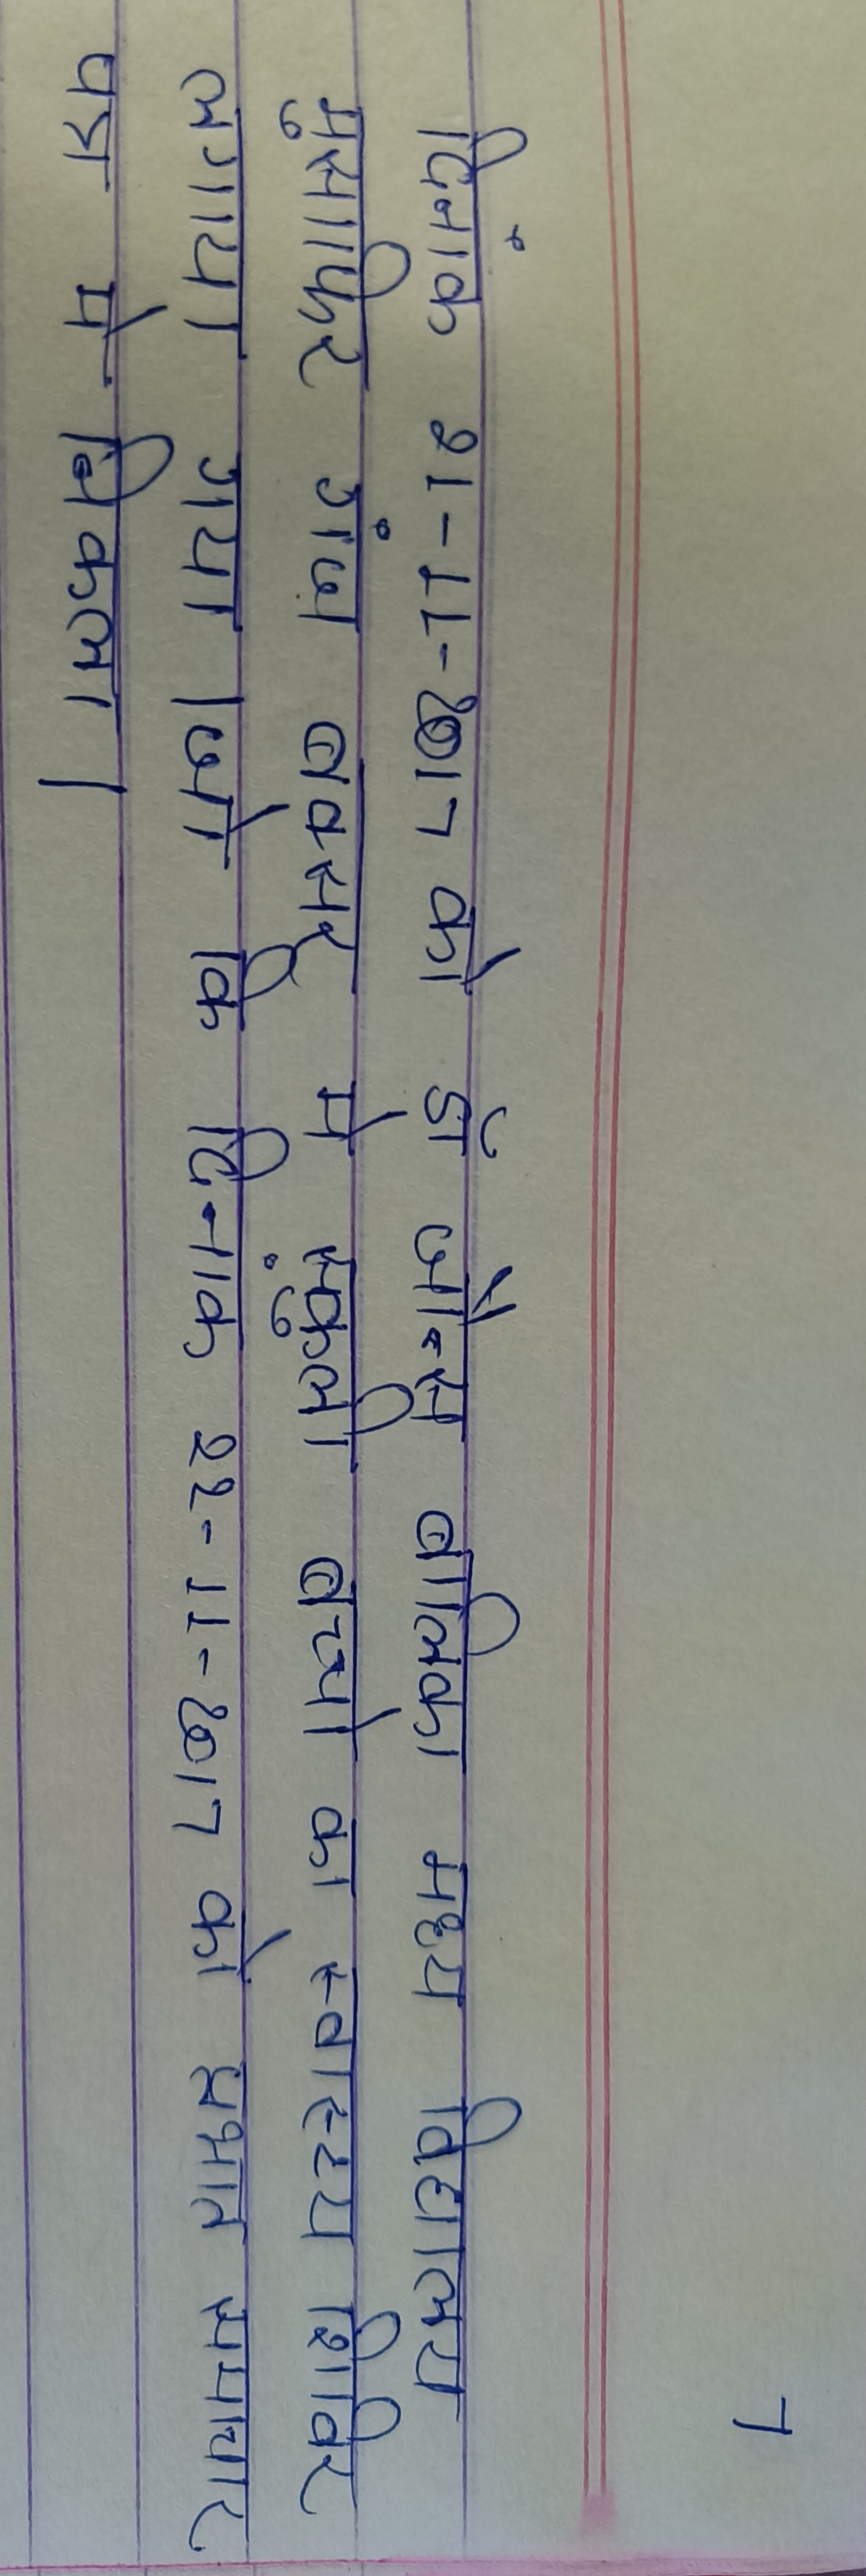 7
दिनांक 21-11-2017 को डॉ जोन्स बालिका मध्य विद्यालय
मुसाफिर गंज बक्सर में स्कुली बच्चो का स्वास्थ्य शिविर
लगाया गया। जो कि दिनाक 22-11-2017 को प्रभात समाचार
पत्र मे निकला।